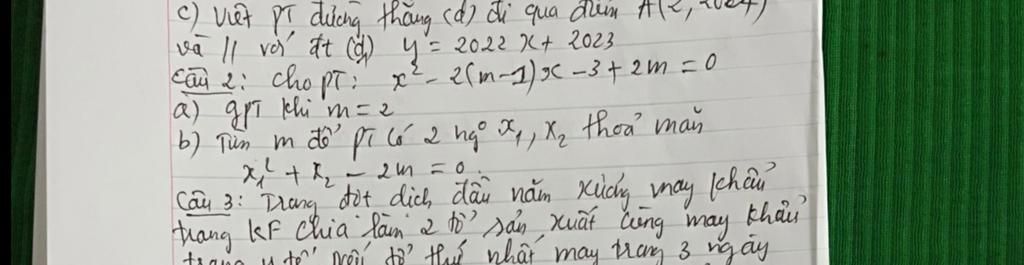 c) Viết PT đường thẳng (d) đi qua điểm A(2, 2024)
và // với đt (d₁) y = 2022 x + 2023
Câu 2: Cho PT: x² - 2(m-1)x - 3 + 2m = 0
a) gPT khi m = 2
b) Tìm m để PT có 2 ng° x₁, x₂ thoả mãn
x₁² + x₂ - 2m = 0
Câu 3: Trong đợt dịch đầu năm xưởng may khẩu
trang KF chia làm 2 tổ sản xuất cùng may khẩu
tổ thứ nhất may trong 3 ngày